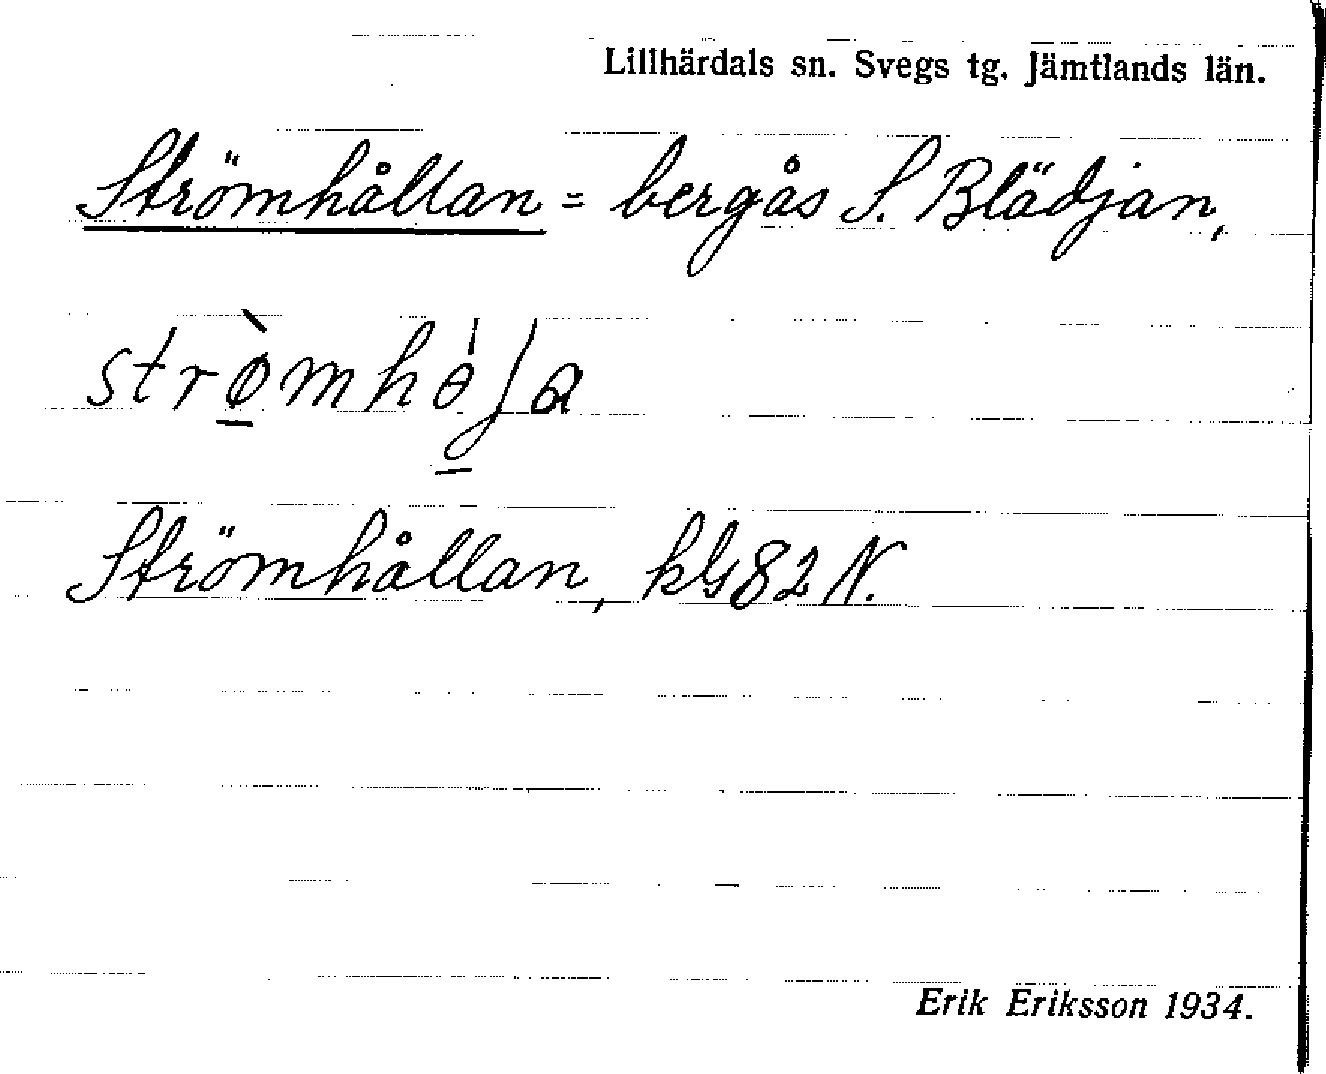 Lillhärdals sn. Svegs tg. Jämtlands län.
Strömhållan = bergås S. Blädjan,
Strömhållan, kG82N.
Erik Eriksson 1934.